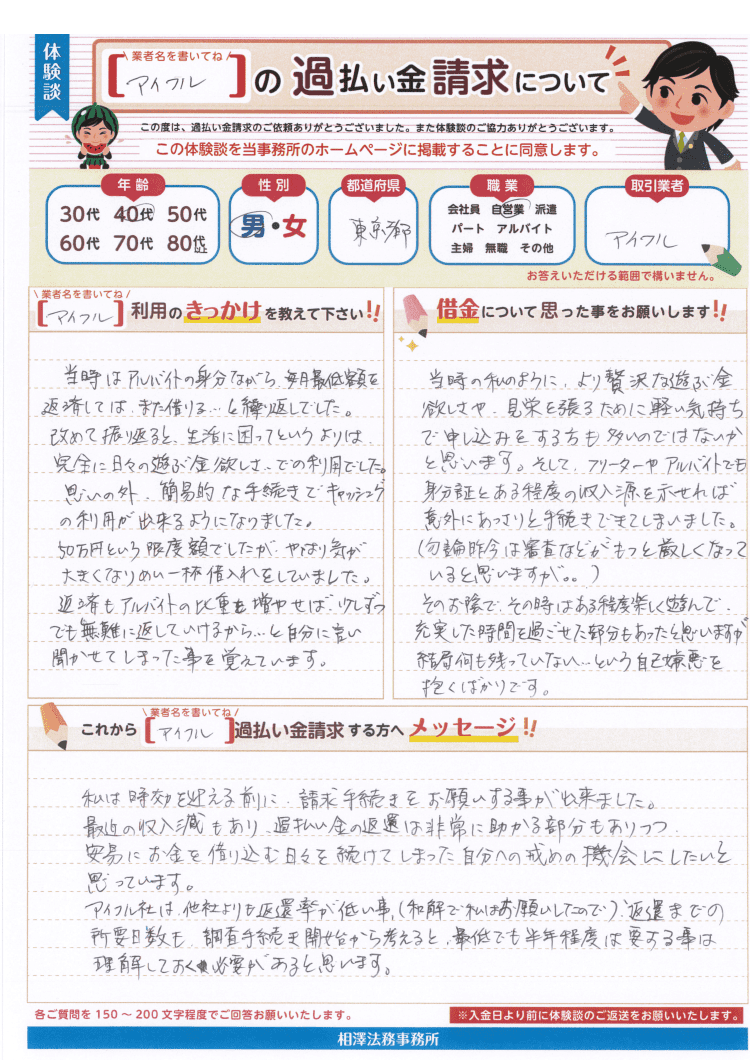 体験談
\ 業者名を書いてね /
[アイフル] の 過払い金請求について
この度は、過払い金請求のご依頼ありがとうございました。また体験談のご協力ありがとうございます。
この体験談を当事務所のホームページに掲載することに同意します。
年齢
30代 40代 50代
60代 70代 80代以上
性別
男・女
都道府県
東京都
職業
会社員 自営業 派遣
パート アルバイト
主婦 無職 その他
取引業者
アイフル
お答えいただける範囲で構いません。
\ 業者名を書いてね /
[アイフル] 利用のきっかけを教えて下さい!!
当時はアルバイトの身分ながら、毎月最低額を
返済しては、また借りる…と繰り返しでした。
改めて振り返ると、生活に困ってというよりは、
完全に日々の遊ぶ金欲しさ、での利用でした。
思いの外、簡易的な手続きでキャッシング
の利用が出来るようになりました。
50万円という限度額でしたが、やはり気が
大きくなりめい一杯借入れをしていました。
返済もアルバイトの比重を増やせば、少しずつ
でも無難に返していけるから…と自分に言い
聞かせてしまった事を覚えています。
借金について思った事をお願いします!!
当時の私のように、より贅沢な遊ぶ金
欲しさや、見栄を張るために軽い気持ち
で申し込みをする方も多いのではないか
と思います。そして、フリーターやアルバイトでも
身分証とある程度の収入源を示せれば
意外にあっさりと手続きできてしまいました。
(勿論昨今は審査などがもっと厳しくなって
いると思いますが。。)
そのお陰で、その時はある程度楽しく遊んで、
充実した時間を過ごせた部分もあったと思いますが
結局何も残っていない…という自己嫌悪を
抱くばかりです。
\ 業者名を書いてね /
これから[アイフル]過払い金請求する方へメッセージ!!
私は時効を迎える前に、請求手続きをお願いする事が出来ました。
最近の収入減もあり、過払い金の返還は非常に助かる部分もありつつ、
安易にお金を借り込む日々を続けてしまった自分への戒めの機会にしたいと
思っています。
アイフル社は、他社よりも返還率が低い事、(和解で私はお願いしたので)返還までの
所要日数も、調査手続き開始から考えると、最低でも半年程度は要する事は
理解しておく必要があると思います。
各ご質問を150～200文字程度でご回答お願いいたします。
※入金日より前に体験談のご返送をお願いいたします。
相澤法務事務所